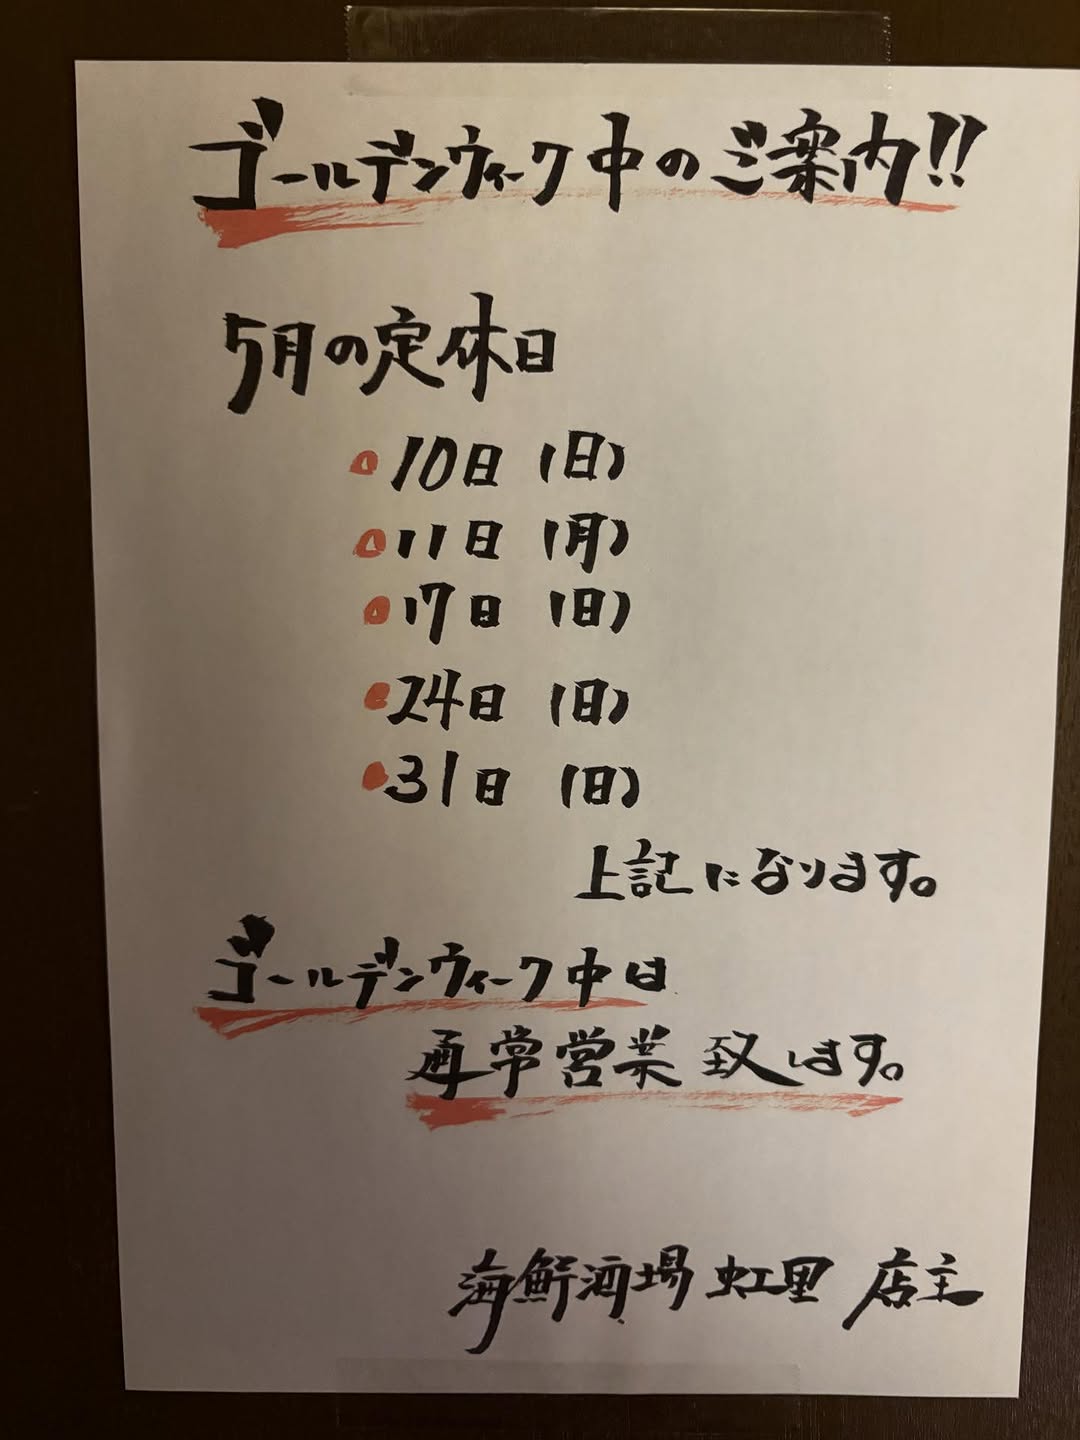 ゴールデンウィーク中のご案内!!
5月の定休日
10日(日)
11日(月)
17日(日)
24日(日)
31日(日)
上記になります。
ゴールデンウィーク中は
通常営業致します。
海鮮酒場 虹里 店主